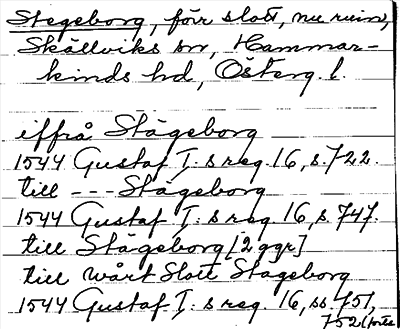 Stegeborg, förr slott, nu ruin,
Skällviks sn, Hammar-
kinds hd, Österg. l.
iffrå Stägeborg
1544 Gustaf I:s reg. 16, s. 722.
till --- Stägeborg
1544 Gustaf I:s reg 16, s. 747.
till Stägeborg [2 ggr]
till wårt Slott Stägeborg
1544 Gustaf I:s reg. 16, ss. 751,
752 (forts